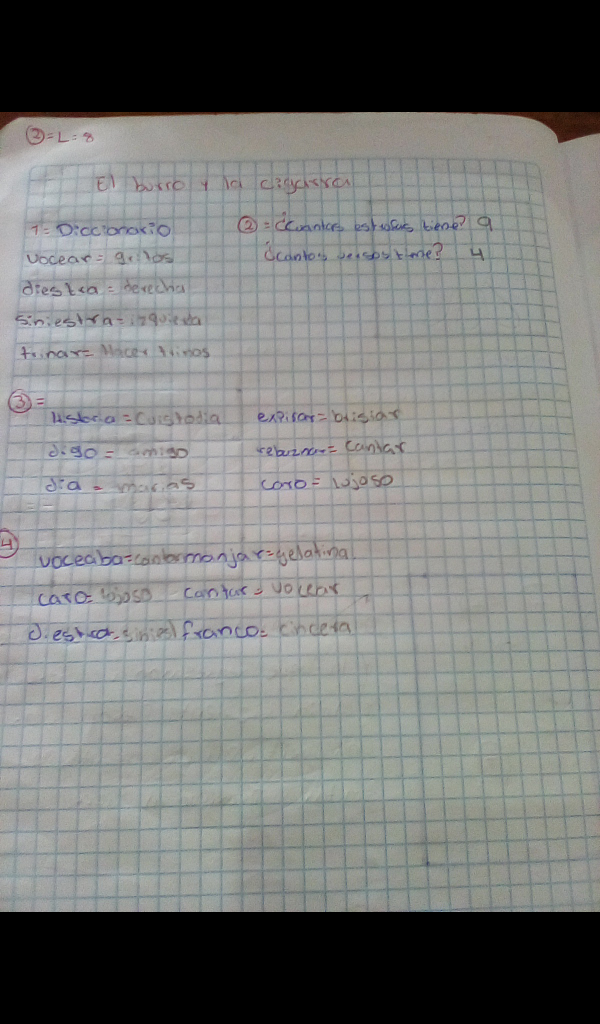 ②=L=8
El burro y la cigarra
1= Diccionario ②=¿Cuantas estrofas tiene? 9
vocear= gritos ¿cantos versos tiene? 4
diestra=derecha
siniestra=izquierda
trinar= Hacer trinos
③=
Historia=Custodia expirar=
digo = amigo rebuznar= Cantar
dia = caro= lujoso
④
voceaba=cantar manjar=gelatina
caro= lujoso cantar= vocear
diestra=siniest franco= cincera